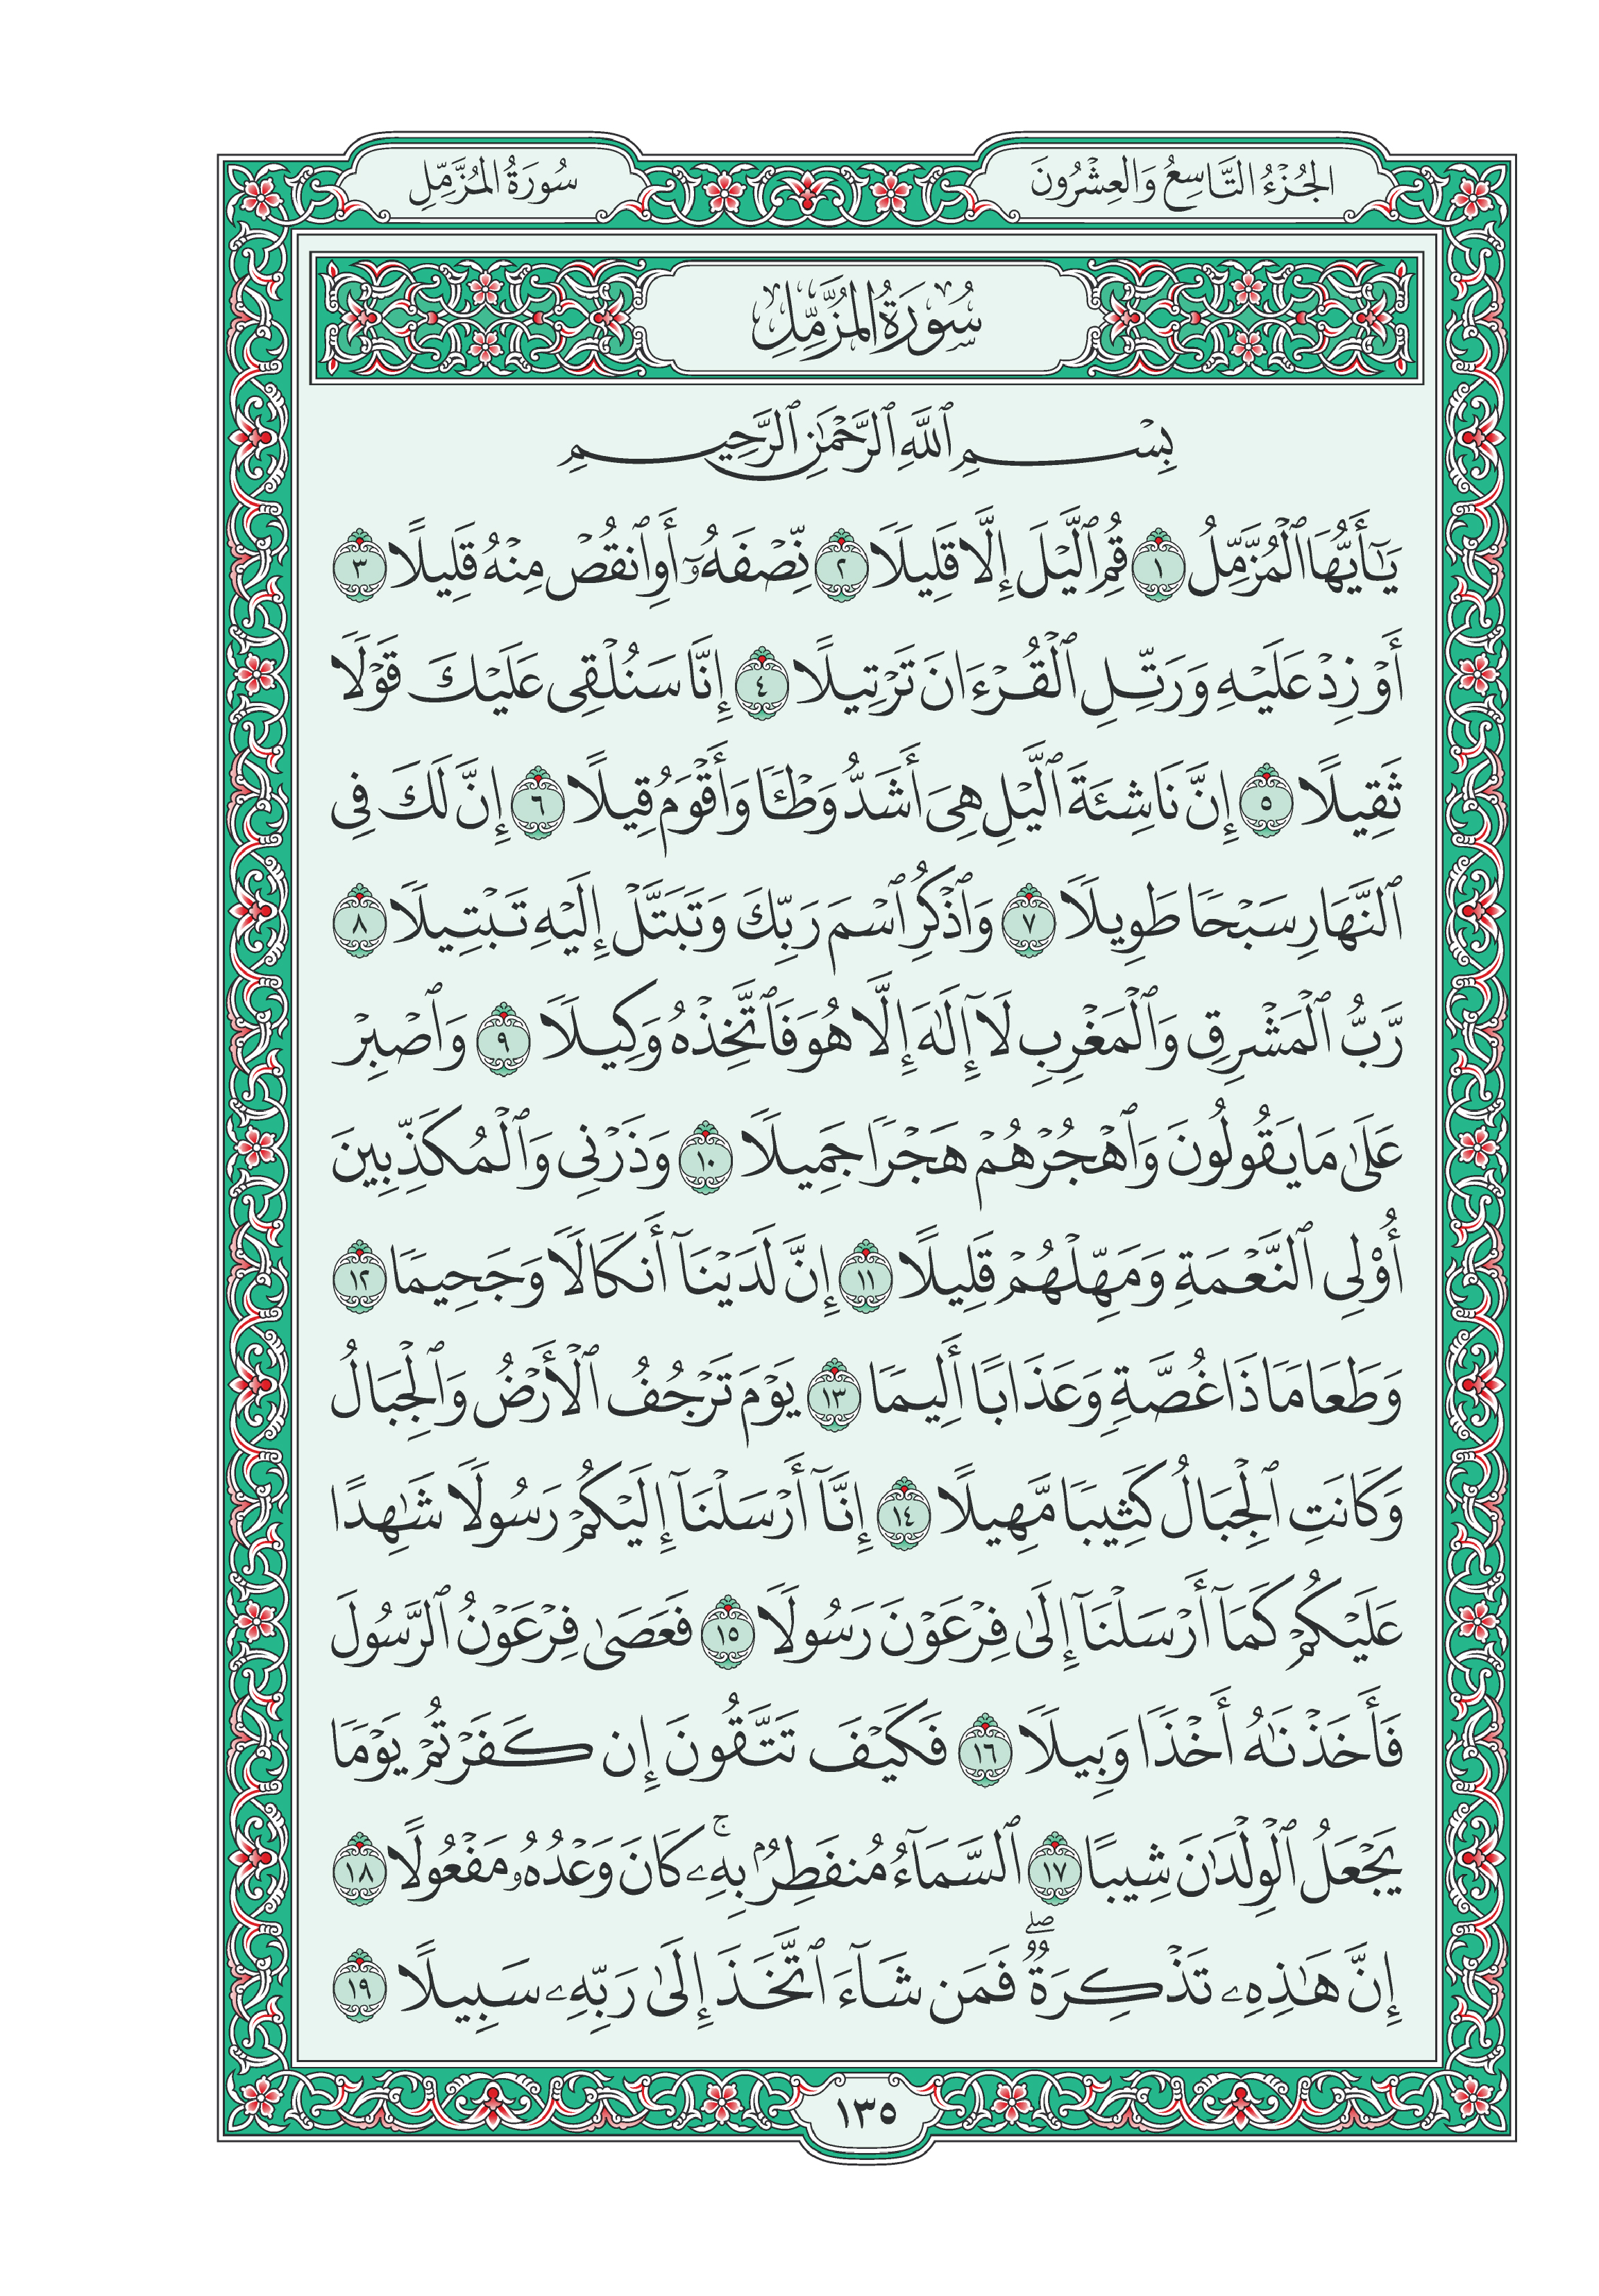 الجُزْءُ التَّاسِعُ وَالعِشْرُونَ
سُورَةُ المُزَّمِّلِ
سُورَةُ المُزَّمِّلِ
بِسْمِ ٱللَّهِ ٱلرَّحْمَٰنِ ٱلرَّحِيمِ
يَٰٓأَيُّهَا ٱلْمُزَّمِّلُ ١ قُمِ ٱلَّيْلَ إِلَّا قَلِيلًا ٢ نِّصْفَهُۥٓ أَوِ ٱنقُصْ مِنْهُ قَلِيلًا ٣
أَوْ زِدْ عَلَيْهِ وَرَتِّلِ ٱلْقُرْءَانَ تَرْتِيلًا ٤ إِنَّا سَنُلْقِى عَلَيْكَ قَوْلًا
ثَقِيلًا ٥ إِنَّ نَاشِئَةَ ٱلَّيْلِ هِىَ أَشَدُّ وَطْـًٔا وَأَقْوَمُ قِيلًا ٦ إِنَّ لَكَ فِى
ٱلنَّهَارِ سَبْحًا طَوِيلًا ٧ وَٱذْكُرِ ٱسْمَ رَبِّكَ وَتَبَتَّلْ إِلَيْهِ تَبْتِيلًا ٨
رَّبُّ ٱلْمَشْرِقِ وَٱلْمَغْرِبِ لَآ إِلَٰهَ إِلَّا هُوَ فَٱتَّخِذْهُ وَكِيلًا ٩ وَٱصْبِرْ
عَلَىٰ مَا يَقُولُونَ وَٱهْجُرْهُمْ هَجْرًا جَمِيلًا ١٠ وَذَرْنِى وَٱلْمُكَذِّبِينَ
أُو۟لِى ٱلنَّعْمَةِ وَمَهِّلْهُمْ قَلِيلًا ١١ إِنَّ لَدَيْنَآ أَنكَالًا وَجَحِيمًا ١٢
وَطَعَامًا ذَا غُصَّةٍ وَعَذَابًا أَلِيمًا ١٣ يَوْمَ تَرْجُفُ ٱلْأَرْضُ وَٱلْجِبَالُ
وَكَانَتِ ٱلْجِبَالُ كَثِيبًا مَّهِيلًا ١٤ إِنَّآ أَرْسَلْنَآ إِلَيْكُمْ رَسُولًا شَٰهِدًا
عَلَيْكُمْ كَمَآ أَرْسَلْنَآ إِلَىٰ فِرْعَوْنَ رَسُولًا ١٥ فَعَصَىٰ فِرْعَوْنُ ٱلرَّسُولَ
فَأَخَذْنَٰهُ أَخْذًا وَبِيلًا ١٦ فَكَيْفَ تَتَّقُونَ إِن كَفَرْتُمْ يَوْمًا
يَجْعَلُ ٱلْوِلْدَٰنَ شِيبًا ١٧ ٱلسَّمَآءُ مُنفَطِرٌۢ بِهِۦۚ كَانَ وَعْدُهُۥ مَفْعُولًا ١٨
إِنَّ هَٰذِهِۦ تَذْكِرَةٌۖ فَمَن شَآءَ ٱتَّخَذَ إِلَىٰ رَبِّهِۦ سَبِيلًا ١٩
١٣٥